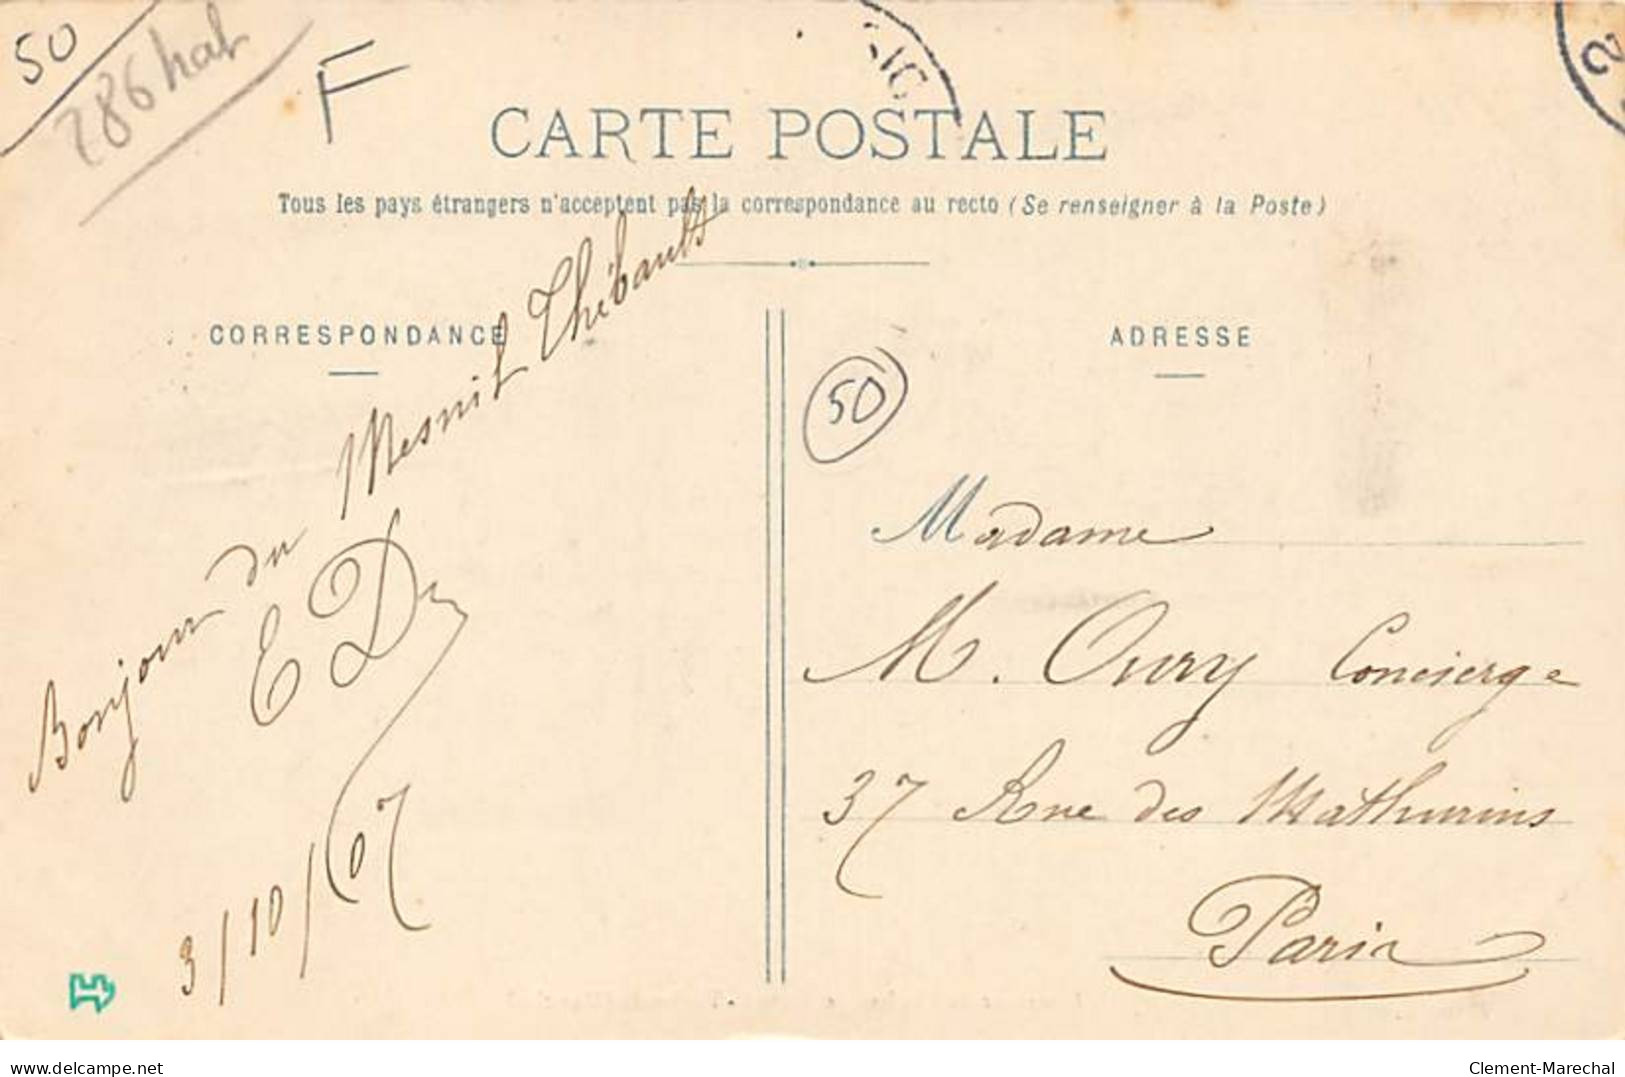 50
286 hab
F
CARTE POSTALE
Tous les pays étrangers n'acceptent pas la correspondance au recto (Se renseigner à la Poste)
CORRESPONDANCE
Bonjour du Mesnil Thibault
ED
3/10/07
ADRESSE
50
Madame
M. Oury Concierge
37 Rue des Mathurins
Paris
www.delcampe.net
Clement-Marechal